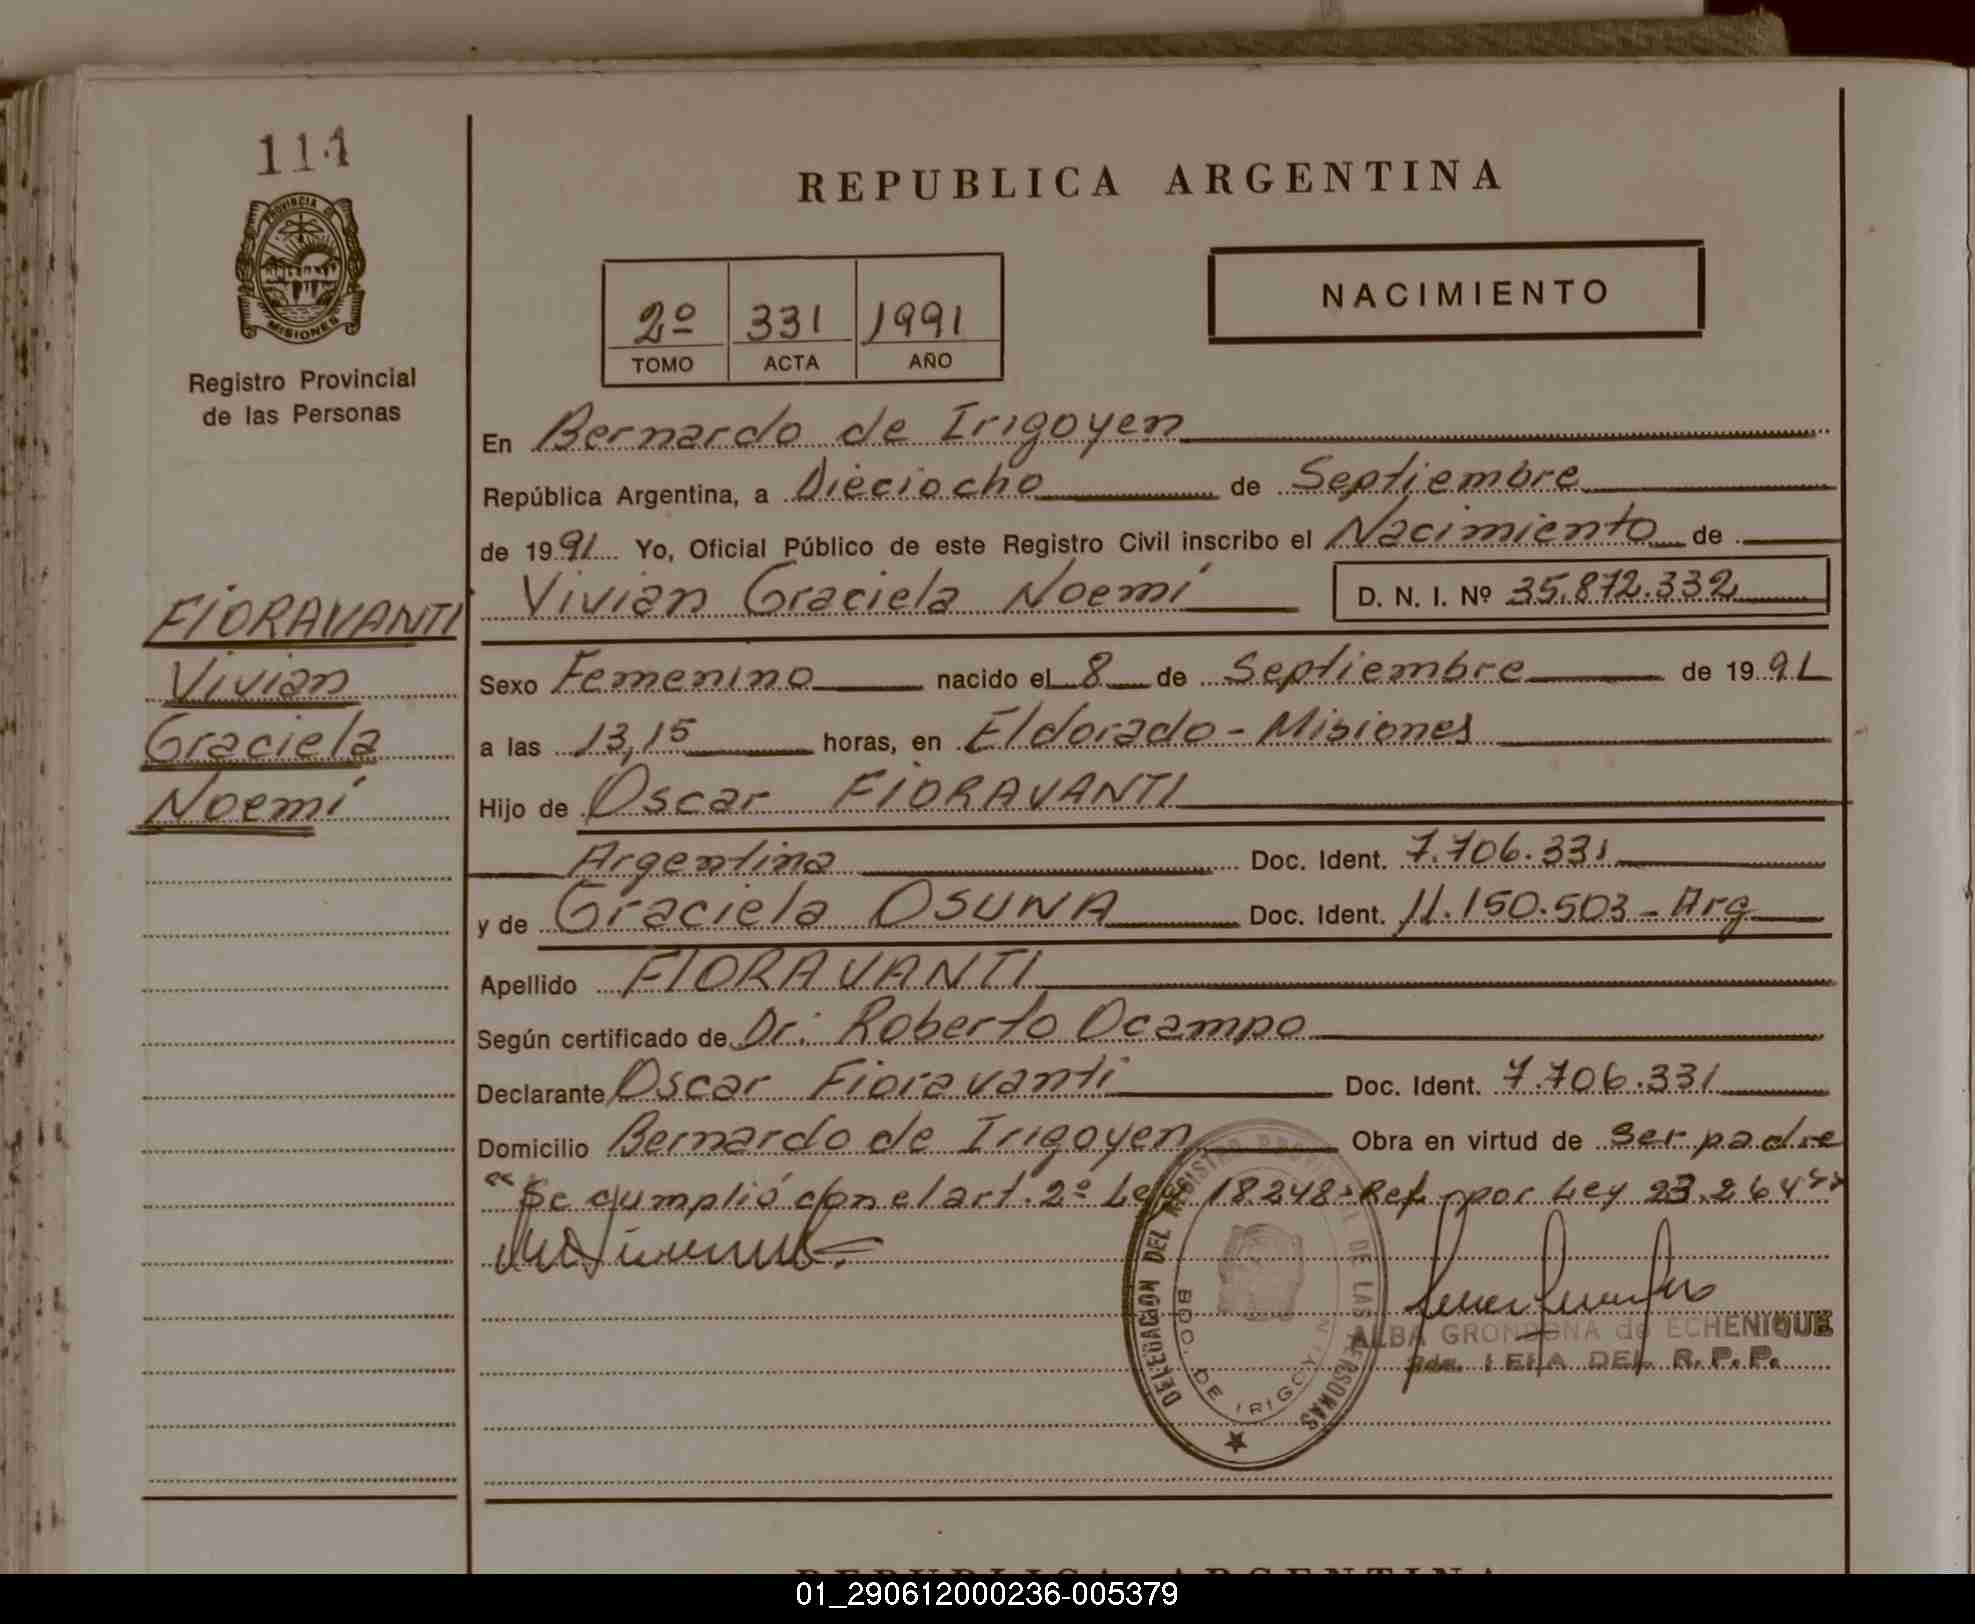 114
PROVINCIA DE
MISIONES
Registro Provincial
de las Personas
FIORAVANTI
Vivian
Graciela
Noemí
REPUBLICA ARGENTINA
2º 331 1991
TOMO ACTA AÑO
NACIMIENTO
En Bernardo de Irigoyen
República Argentina, a Dieciocho de Septiembre
de 1991 Yo, Oficial Público de este Registro Civil inscribo el Nacimiento de
Vivian Graciela Noemí D. N. I. Nº 35.872.332
Sexo Femenino nacido el 8 de Septiembre de 1991
a las 13,15 horas, en Eldorado - Misiones
Hijo de Oscar FIORAVANTI
Argentina Doc. Ident. 7.706.331
y de Graciela OSUNA Doc. Ident. 11.150.503 - Arg
Apellido FIORAVANTI
Según certificado de Dr. Roberto Ocampo
Declarante Oscar Fioravanti Doc. Ident. 7.706.331
Domicilio Bernardo de Irigoyen Obra en virtud de ser padre
"Se cumplió con el art. 2º Ley 18.248. Ref. por Ley 23.264"
DELEGACION DEL REGISTRO PROVINCIAL DE LAS PERSONAS
BDO. DE IRIGOYEN
ALBA GRONDONA de ECHENIQUE
JEFA DEL R. P. P.
REPUBLICA ARGENTINA
01_290612000236-005379